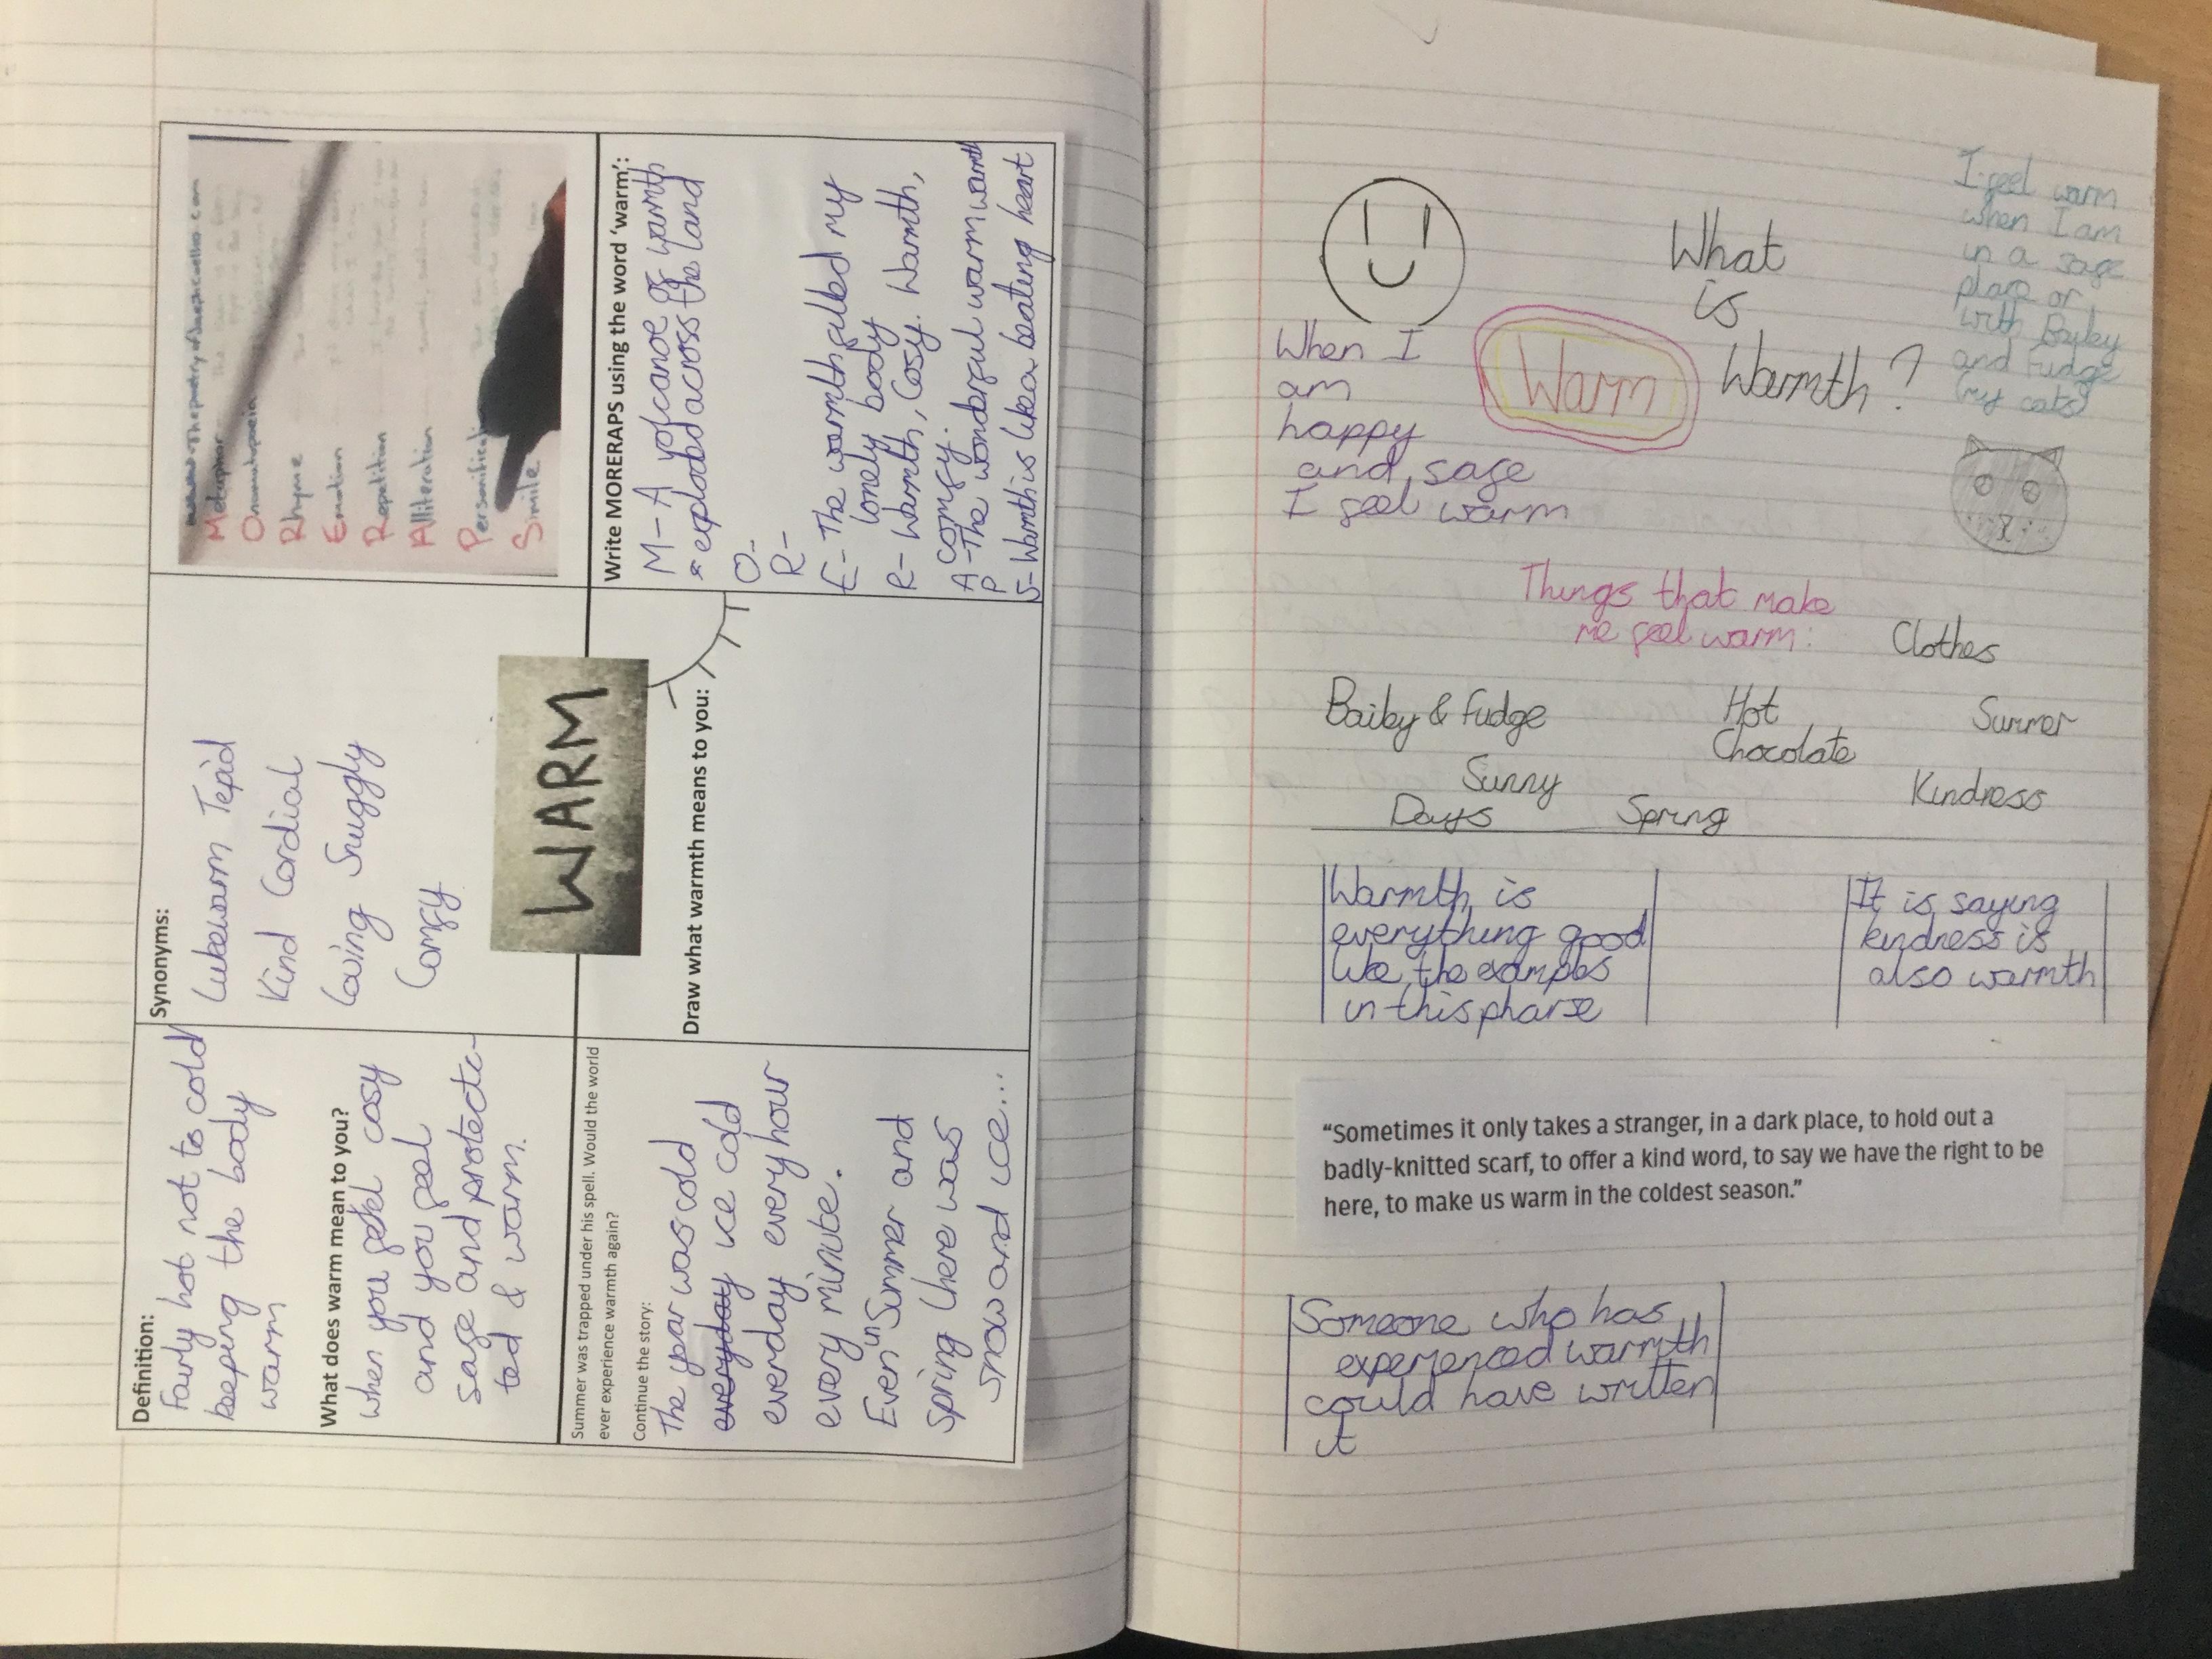 Definition:
Fairly hot not to cold
keeping the body
warm
What does warm mean to you?
when you feel cosy
and you feel
safe and protecte-
ted & warm.
Synonyms:
Lukewarm Tepid
Kind Cordial
Loving Snuggly
Comfy
Metaphor
Onomatopoeia
Rhyme
Emotion
Repetition
Alliteration
Personificati
Simile
WARM
Summer was trapped under his spell. Would the world
ever experience warmth again?
Continue the story:
The year was cold
everyday ice cold
everday every hour
every minute.
Even in Summer and
Spring there was
snow and ice...
Draw what warmth means to you:
Write MORERAPS using the word 'warm':
M- A volcanoe of warmth
* exploded across the land
O-
R-
E- The warmth filled my
lonely body
R- Warmth, Cosy. Warmth,
comfy.
A -The wonderful warm warmth
P
S- Warmth is like a beating heart
What
is
Warmth?
Warm
When I
am
happy
and safe
I feel warm
I feel warm
when I am
in a safe
place or
with Baiby
and Fudge
(my cats)
Things that make
me feel warm:
Clothes
Baiby & Fudge
Hot
Chocolate
Summer
Sunny
Days
Spring
Kindness
Warmth is
everything good
like the examples
in this pharse
It is saying
kindness is
also warmth
"Sometimes it only takes a stranger, in a dark place, to hold out a
badly-knitted scarf, to offer a kind word, to say we have the right to be
here, to make us warm in the coldest season."
Someone who has
experienced warmth
could have written
it